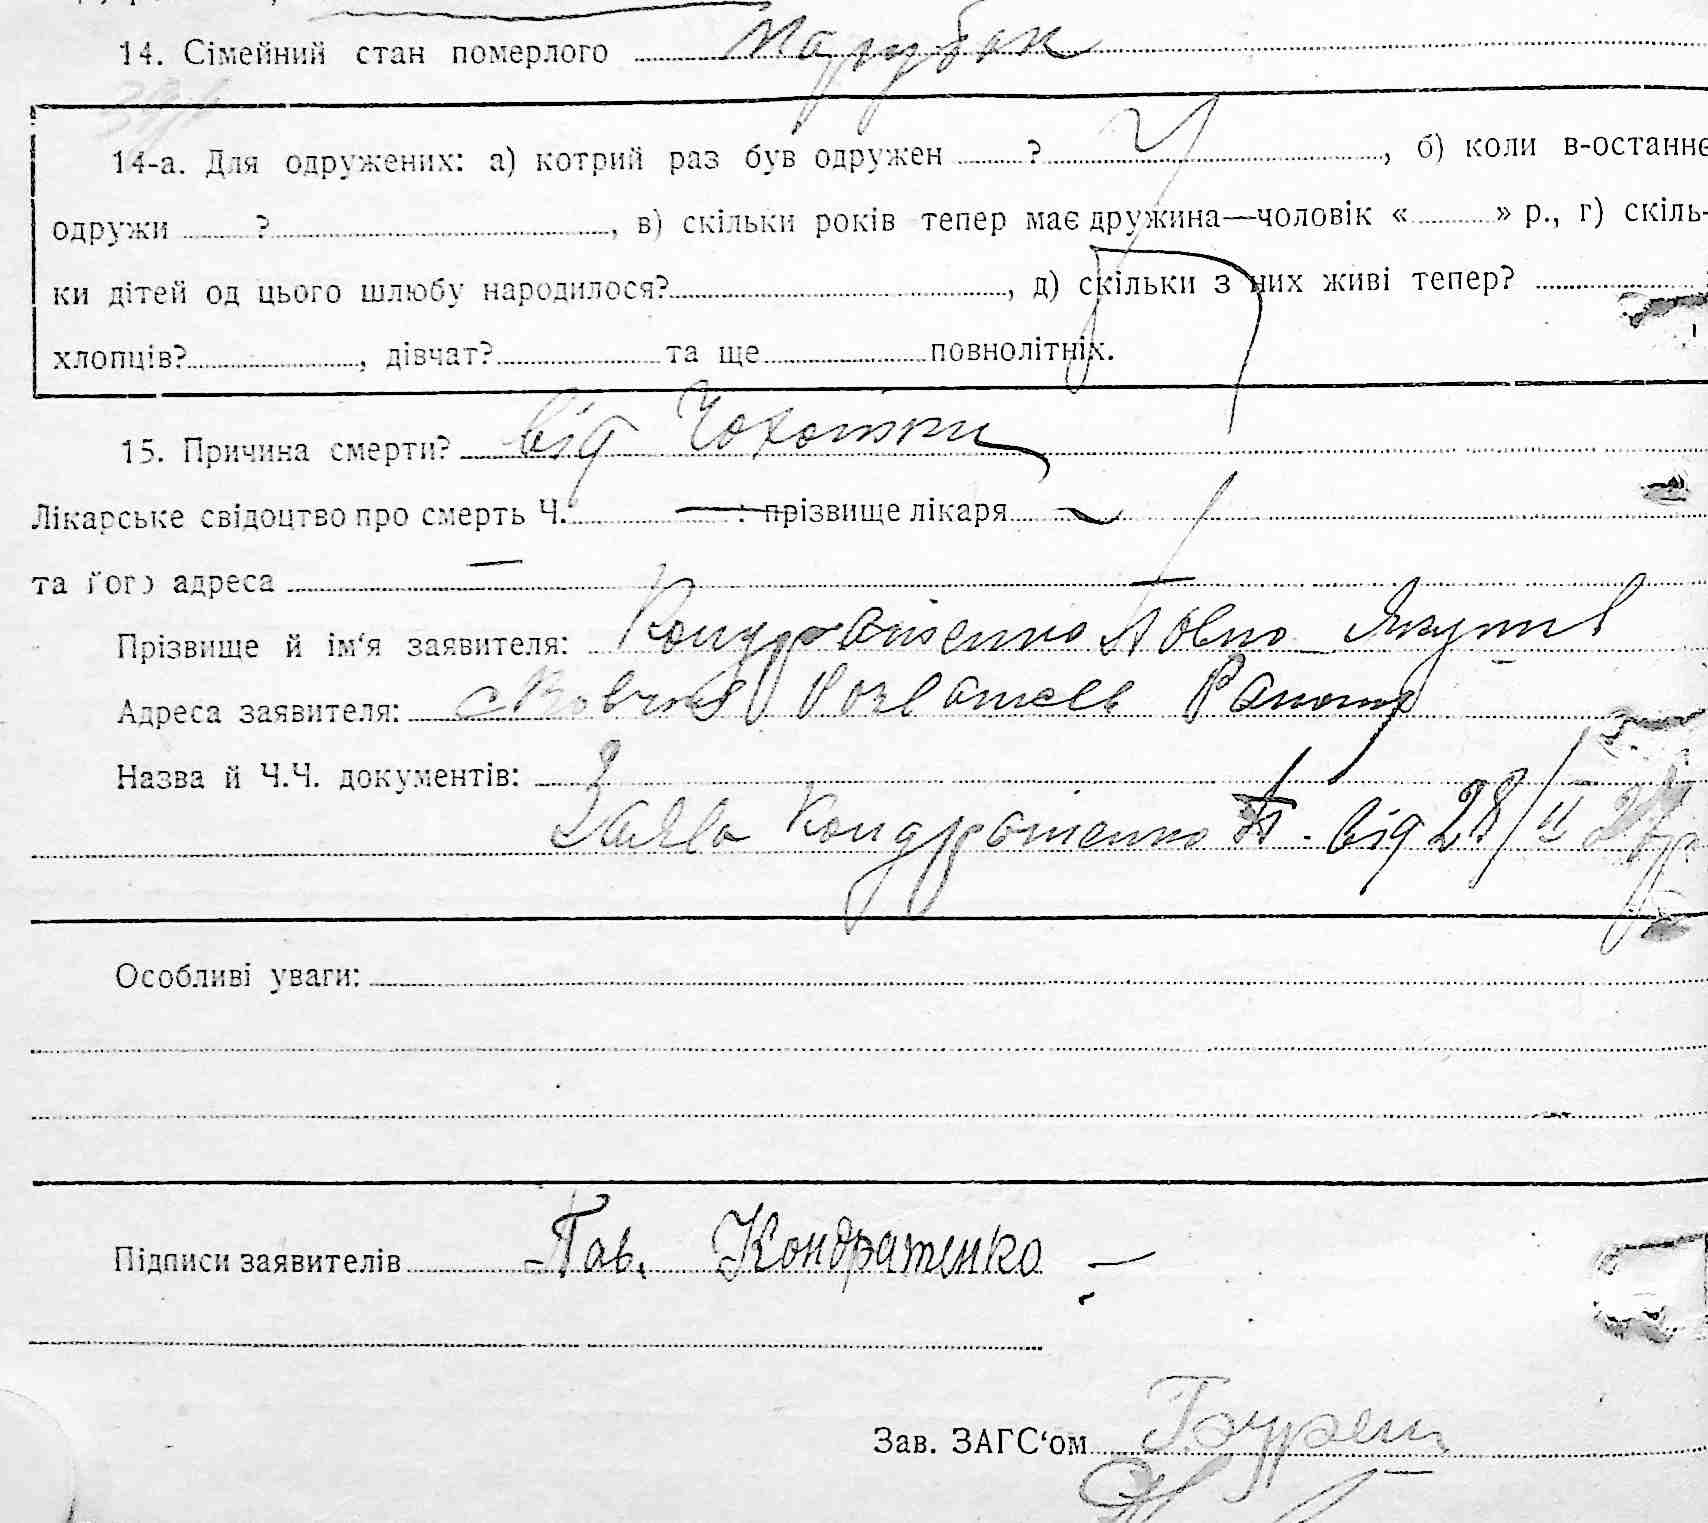 14. Сімейний стан померлого Парубок
14-а. Для одружених: а) котрий раз був одружен ?, б) коли в-останнє
одружи ?, в) скільки років тепер має дружина—чоловік « » р., г) скіль-
ки дітей од цього шлюбу народилося?, д) скільки з них живі тепер?
хлопців?, дівчат? та ще повнолітніх.
15. Причина смерти? від Чохотки
Лікарське свідоцтво про смерть Ч. : прізвище лікаря
та його адреса
Прізвище й ім‘я заявителя: Кондратенко Павло
Адреса заявителя: с
Назва й Ч.Ч. документів:
Заява Кондратенко П. від 28/II
Особливі уваги:
Підписи заявителів Пав. Кондратенко
Зав. ЗАГС‘ом